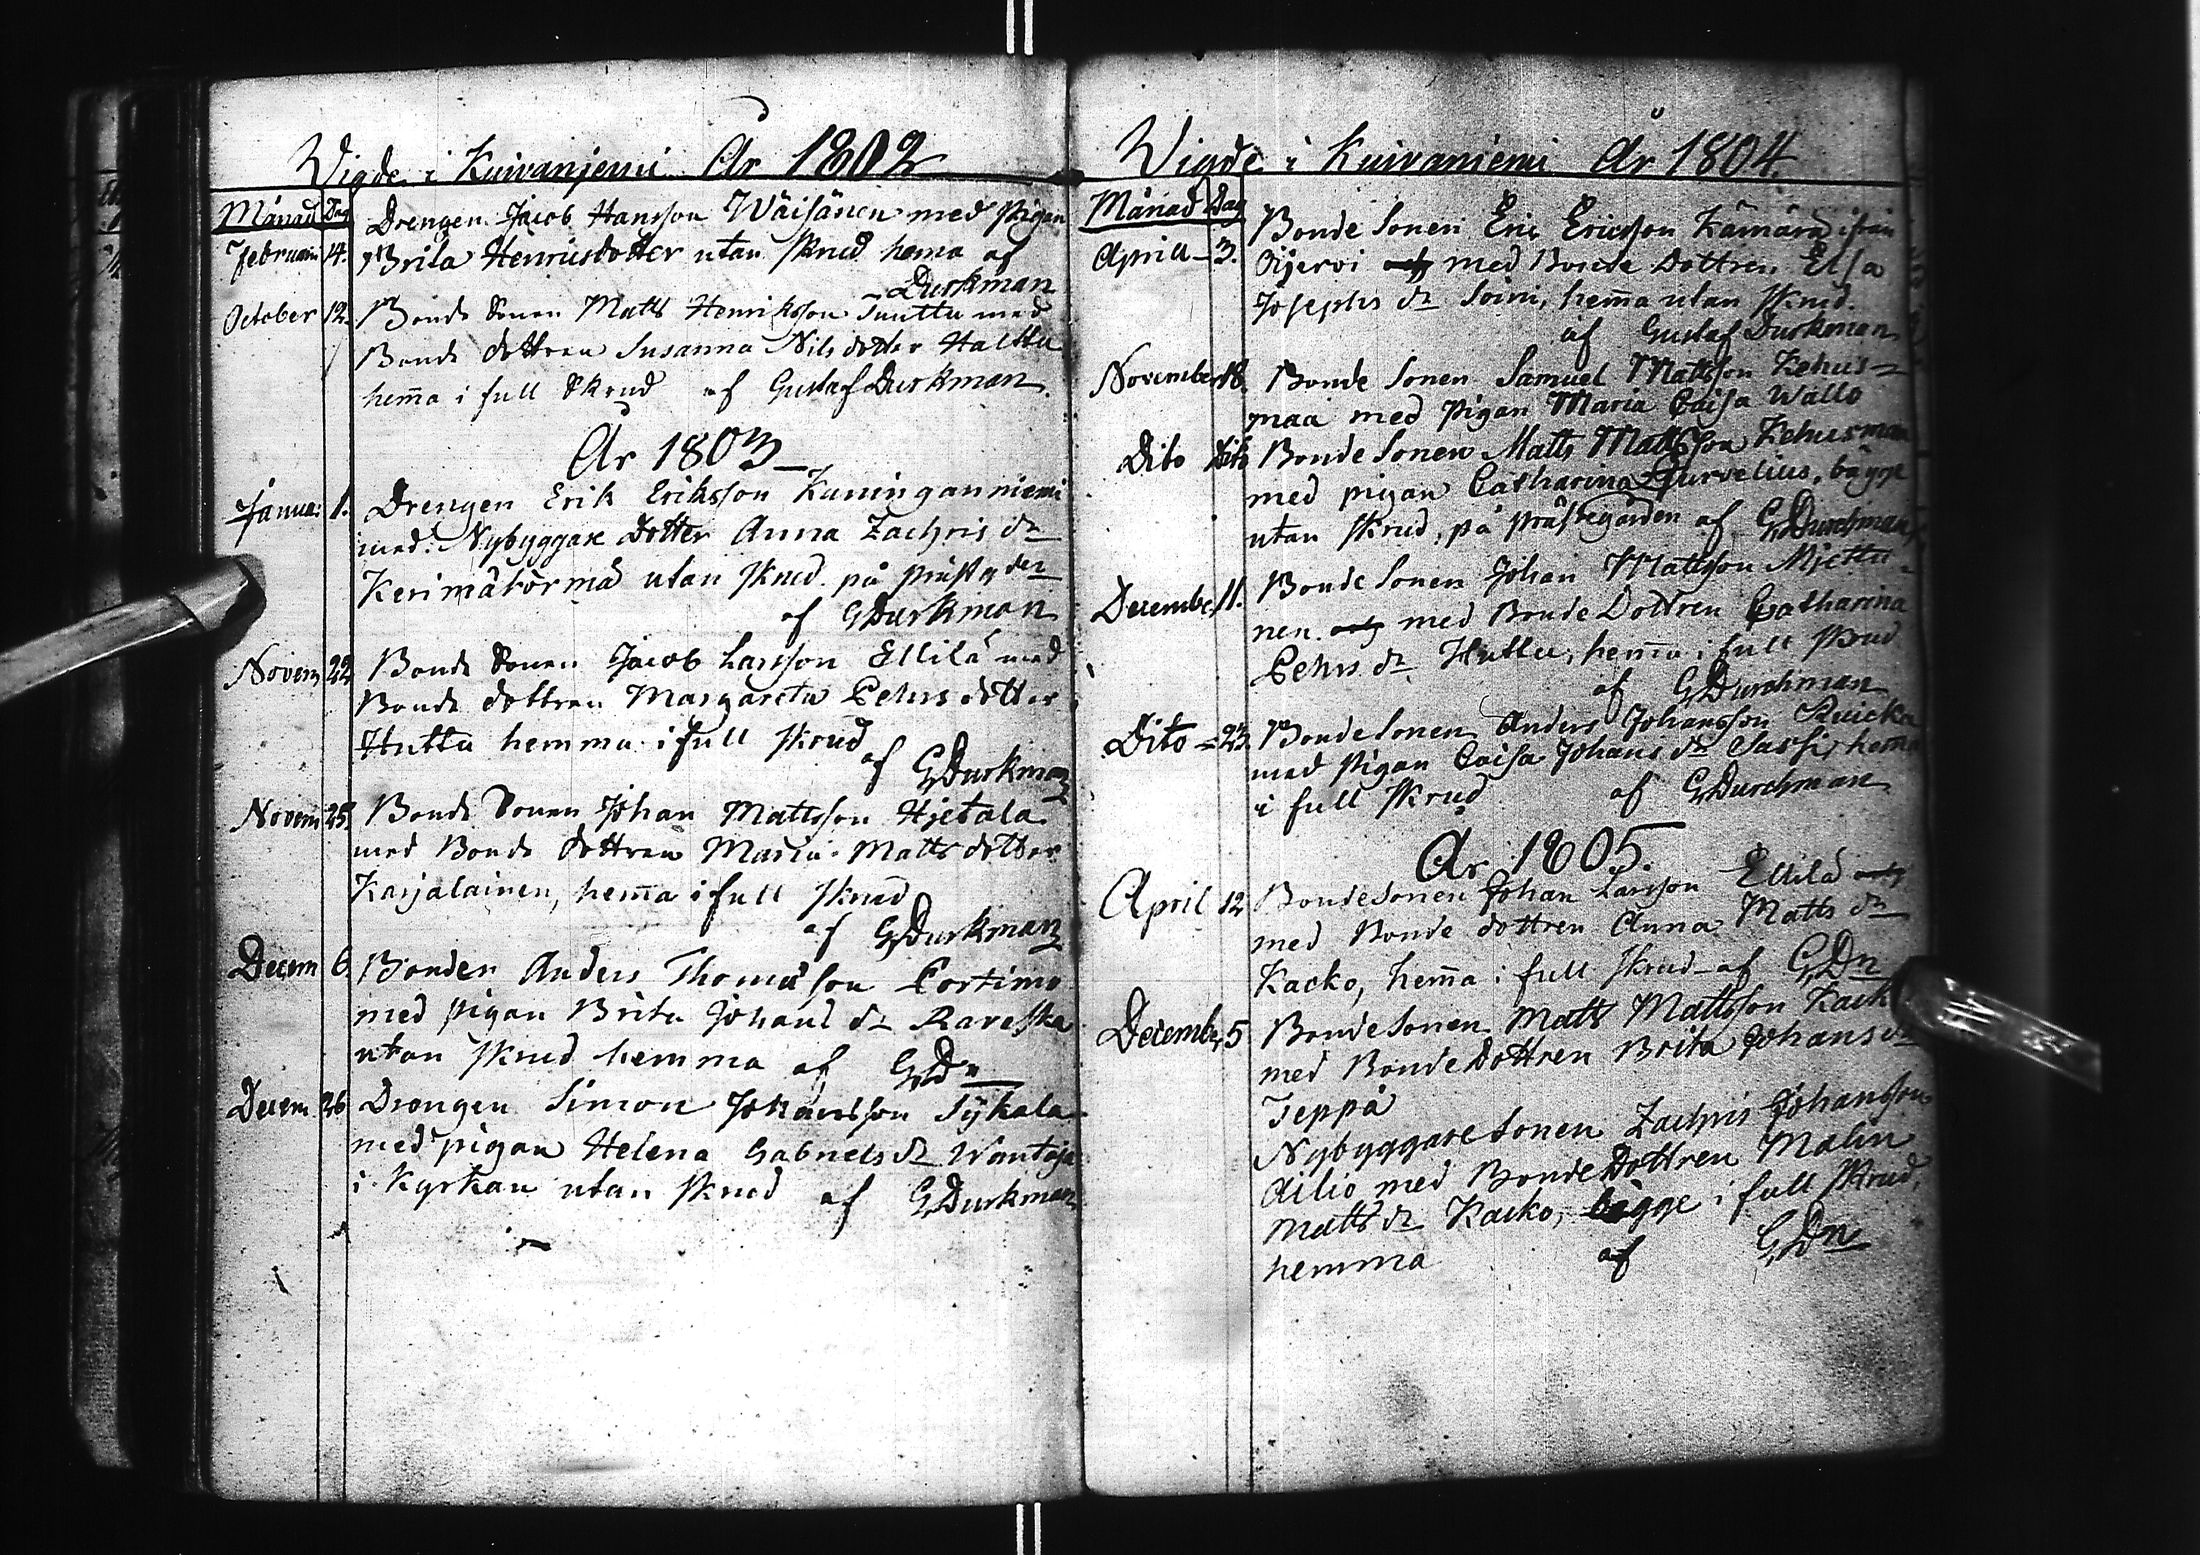 Wigde i Kuivanjemi År 1802
Månad Dag Drengen Jacob Hansson Wäisänen med pigan
Februarii 14. Brita Henricsdotter utan skrud hema af
Durkman
October 12. Bonde Sonen Matts Henriksson Tuuttu med
Bonde dottren Susanna Nilsdotter Halttu
hem̅a i full Skrud af Gustaf Durkman.
År 1803
Januar 1. Drengen Erik Eriksson Kuninganniemi
med Nybyggare Dotter Anna Zachris dr
Kerimäkörmä utan skrud på prästgden
af GDurkman
Novem 22 Bonde Sonen Jacob Larsson Ellilä med
Bonde dottren Margareta Pehrs dotter
Huttu hemma i full skrud
af GDurkman
Novem 25 Bonde Sonen Johan Mattsson Hjetala
med Bonde dottren Maria Matts dotter
Karjalainen, hem̅a i full skrud
af GDurkman
Decem 6 Bonden Anders Thomasson Portimo
med pigan Brita Johans dr Raveska
utan skrud hemma af GDn
Decem 26 Drengen Simon Johansson Tykala
med pigan Helena Gabriels dr Wantaja
i Kyrkan utan skrud af GDurkman
Wigde i Kuivaniemi År 1804.
Månad Dag Bonde Sonen Eric Ericsson Kämärä ifrån
April 3. Oijervi med Bonde Dottren Elsa
Josephs dr Soini, hem̅a utan skrud.
af Gustaf Durkman
November 18. Bonde Sonen Samuel Mattsson Kehus-
maa med pigan Maria Caisa Wallo
Dito Dito Bonde Sonen Matts Mattsson Kehusmaa
med pigan Catharina Curvelius, bägge
utan skrud, på prästegården af GDurchman
December 11. Bonde Sonen Johan Mattsson Mjettu-
nen med Bonde Dottren Catharina
Pehrs dr Huttu, hem̅a i full skrud
af GDurchman
Dito 23. Bonde Sonen Anders Johansson Kuicka
med pigan Caisa Johans dr Sassi, hem̅a
i full skrud af GDurchman
År 1805.
April 12 Bonde Sonen Johan Larsson Ellilä
med Bonde dottren Anna Matts dr
Kacko, hem̅a i full skrud af GDn
December 5 Bonde Sonen Matts Mattsson Kack
med Bonde Dottren Brita Johans dr
Teppå
Nybyggare Sonen Zachris Johansson
Ailio med Bonde Dottren Malin
Matts dr Kacko, bägge i full skrud,
hemma af GDn